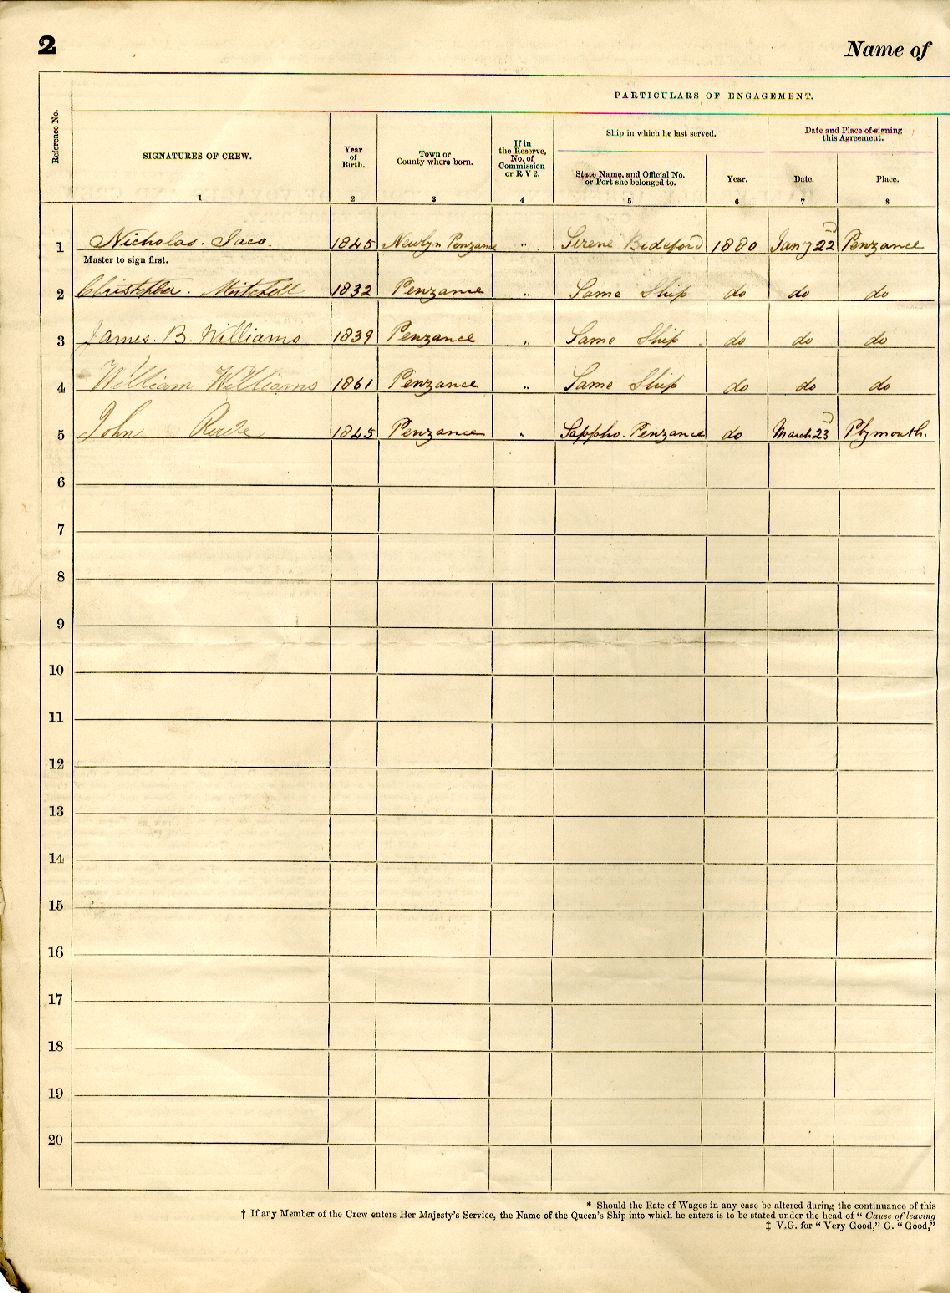 2 Name of
PARTICULARS OF ENGAGEMENT.
Reference No.
SIGNATURES OF CREW.
Year of Birth.
Town or County where born.
If in the Reserve, No. of Commission or R V 2.
Ship in which he last served.
State Name, and Official No. or Port she belonged to.
Year.
Date and Place of signing this Agreement.
Date.
Place.
1 2 3 4 5 6 7 8
1 Nicholas. Jaco. 1845 Newlyn Penzance " Serene Bideford 1880 Jany 22 Penzance
Master to sign first.
2 Christopher. Mitchell 1832 Penzance " Same Ship do do do
3 James. B. Williams 1839 Penzance " Same Ship. do do do
4 William Williams 1861 Penzance " Same Ship do do do
5 John 1845 Penzance " Sappho. Penzance do March 23 Plymouth.
6
7
8
9
10
11
12
13
14
15
16
17
18
19
20
* Should the Rate of Wages in any case be altered during the continuance of this
† If any Member of the Crew enters Her Majesty's Service, the Name of the Queen's Ship into which he enters is to be stated under the head of "Cause of leaving
‡ V.G. for "Very Good," G. "Good,"